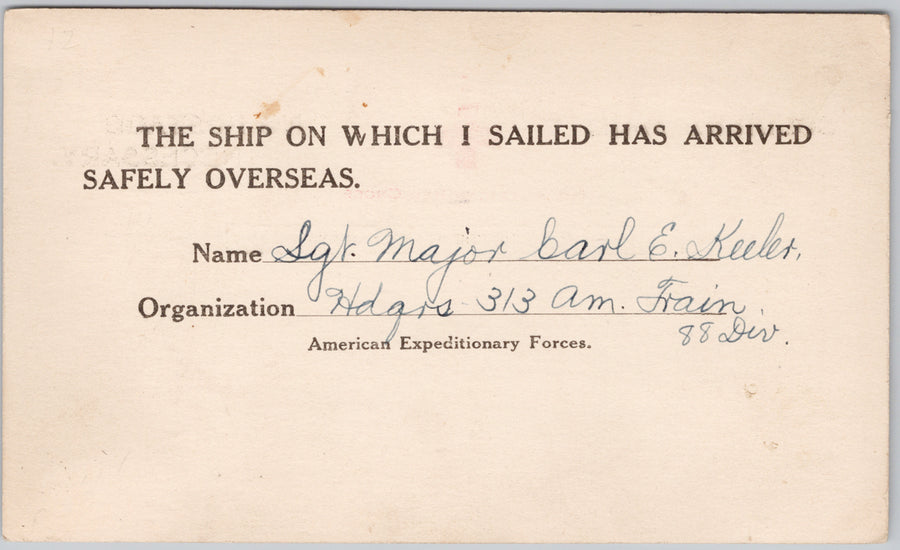 THE SHIP ON WHICH I SAILED HAS ARRIVED
SAFELY OVERSEAS.
Name Sgt. Major Carl E. Keeler.
Organization Hdqrs 313 Am. Train
88 Div.
American Expeditionary Forces.